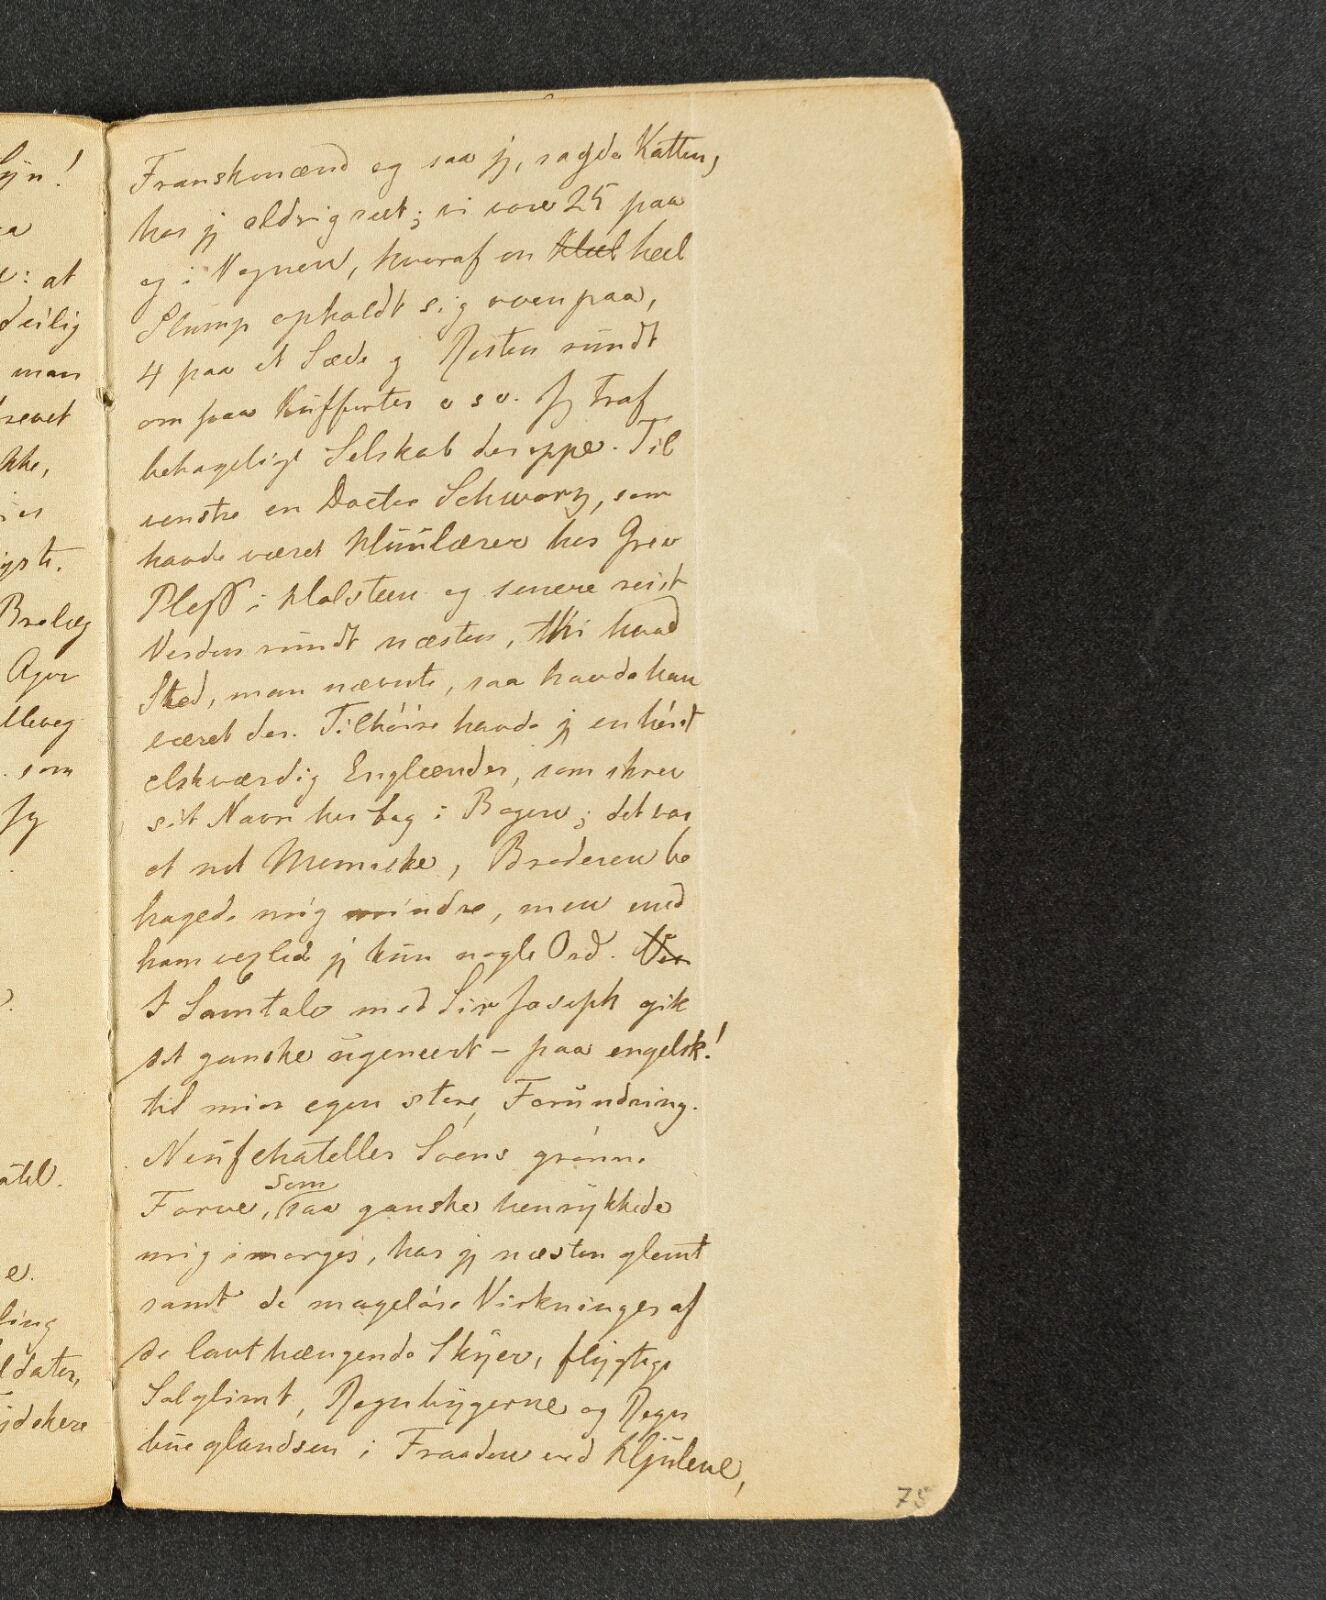 Franskmænd og saa jg, sagde Katten,
har jg aldrig seet; vi vare 25 paa
og i Vognen, hvoraf en heel
Slump opholdt sig ovenpaa,
4 paa et Sæde og Resten rundt
om paa Kufferter o s v. Jg traf
behageligt Selskab deroppe. Til
venstre en Doctor Schwarz, som
havde været Huuslærer hos Grev
Pless i Holsteen og senere reist
Verden rundt næsten, thi hvad
Sted, man nævnte, saa havde han
været der. Tilhöire havde jg en höist
elskværdig Englænder, som skrev
sit Navn her bag i Bogen; det var
et net Menneske, Broderen be
hagede mig mindre, men med
ham vexled jg kun nogle Ord.
I Samtale med Sir Joseph gik
det ganske ugeneert – paa engelsk!
til min egen store Forundring.
Neufchateller Söens grönne
Farve, som saa ganske henrykkede
mig imorges, har jg næsten glemt
samt de magelöse Virkninger af
de lavt hængende Skyer, flygtige
Solglimt, Regnbygerne og Regn
bueglandsen i Fraaden ved Hjulene,
75